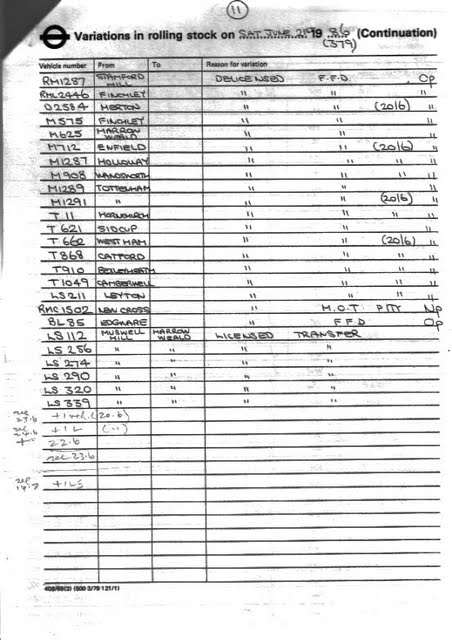 11
Variations in rolling stock on SAT. JUNE 21 19 86 (Continuation)
(379)
Vehicle number From To Reason for variation
RM1287 STAMFORD HILL DELICENSED F.F.D. Op
RML2446 FINCHLEY " " "
D2584 MERTON " " (20/6) "
M575 FINCHLEY " " "
M625 HARROW WEALD " " "
M712 ENFIELD " " (20/6) "
M1287 HOLLOWAY " " " "
M908 WANDSWORTH " " " "
M1289 TOTTENHAM " " "
M1291 " " " (20/6) "
T11 HORNCHURCH " " " "
T621 SIDCUP " " "
T662 WEST HAM " " (20/6) "
T868 CATFORD " " " "
T910 BEXLEYHEATH " " " "
T1049 CAMBERWELL " " " "
LS211 LEYTON " " " "
RMC1502 NEW CROSS " M.O.T PTT Np
BL85 EDGWARE " F.F.D Op
LS112 MUSWELL HILL HARROW WEALD LICENSED TRANSFER
LS256 " " " "
LS274 " " " "
LS290 " " " "
LS320 " " " "
LS339 " " " "
23.6 (20.6)
24.6
22.6
23.6
+1 LS
409/69(2) (500 3/79 121/1)